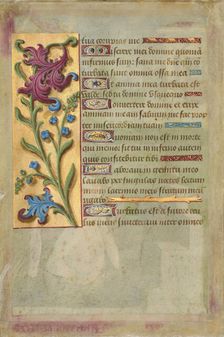 tua corripias me
iserere mei domine quoniā
infirmus sum: sana me dñe qm̄ cō
turbata sunt omnia ossa mea
t anima mea turbata est
valde: sed tu domine usquequo
onvertere domine et eripe
animam meam salvum me fac prop
ter misericordiam tuam
uoniam non est in morte qui
memor sit tui: in inferno autem
quis confitebitur tibi
aboravi in gemitu meo
lavabo per singulas noctes lectum
meum lacrimis meis stratum meum
rigabo
urbatus est a furore ocu
lus meus inveteravi inter